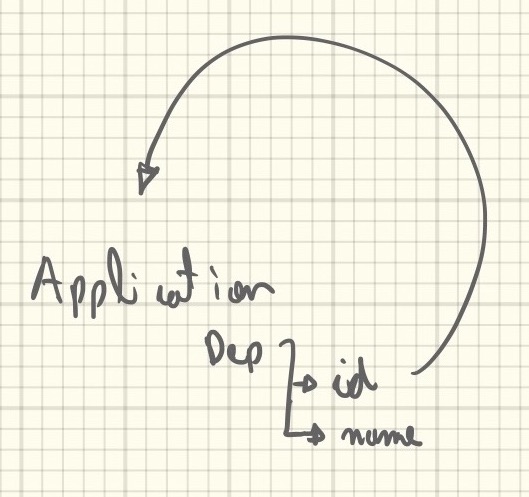 Application
Dep
id
name